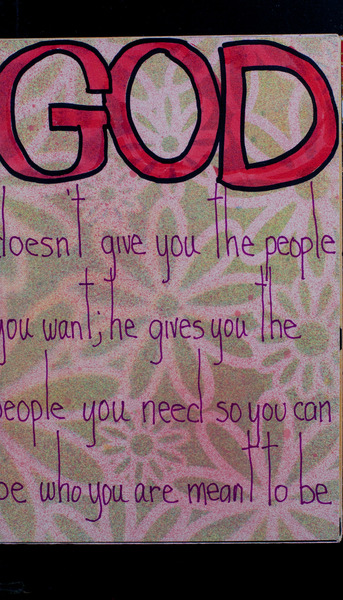 GOD
doesn't give you the people
you want; he gives you the
people you need so you can
be who you are meant to be